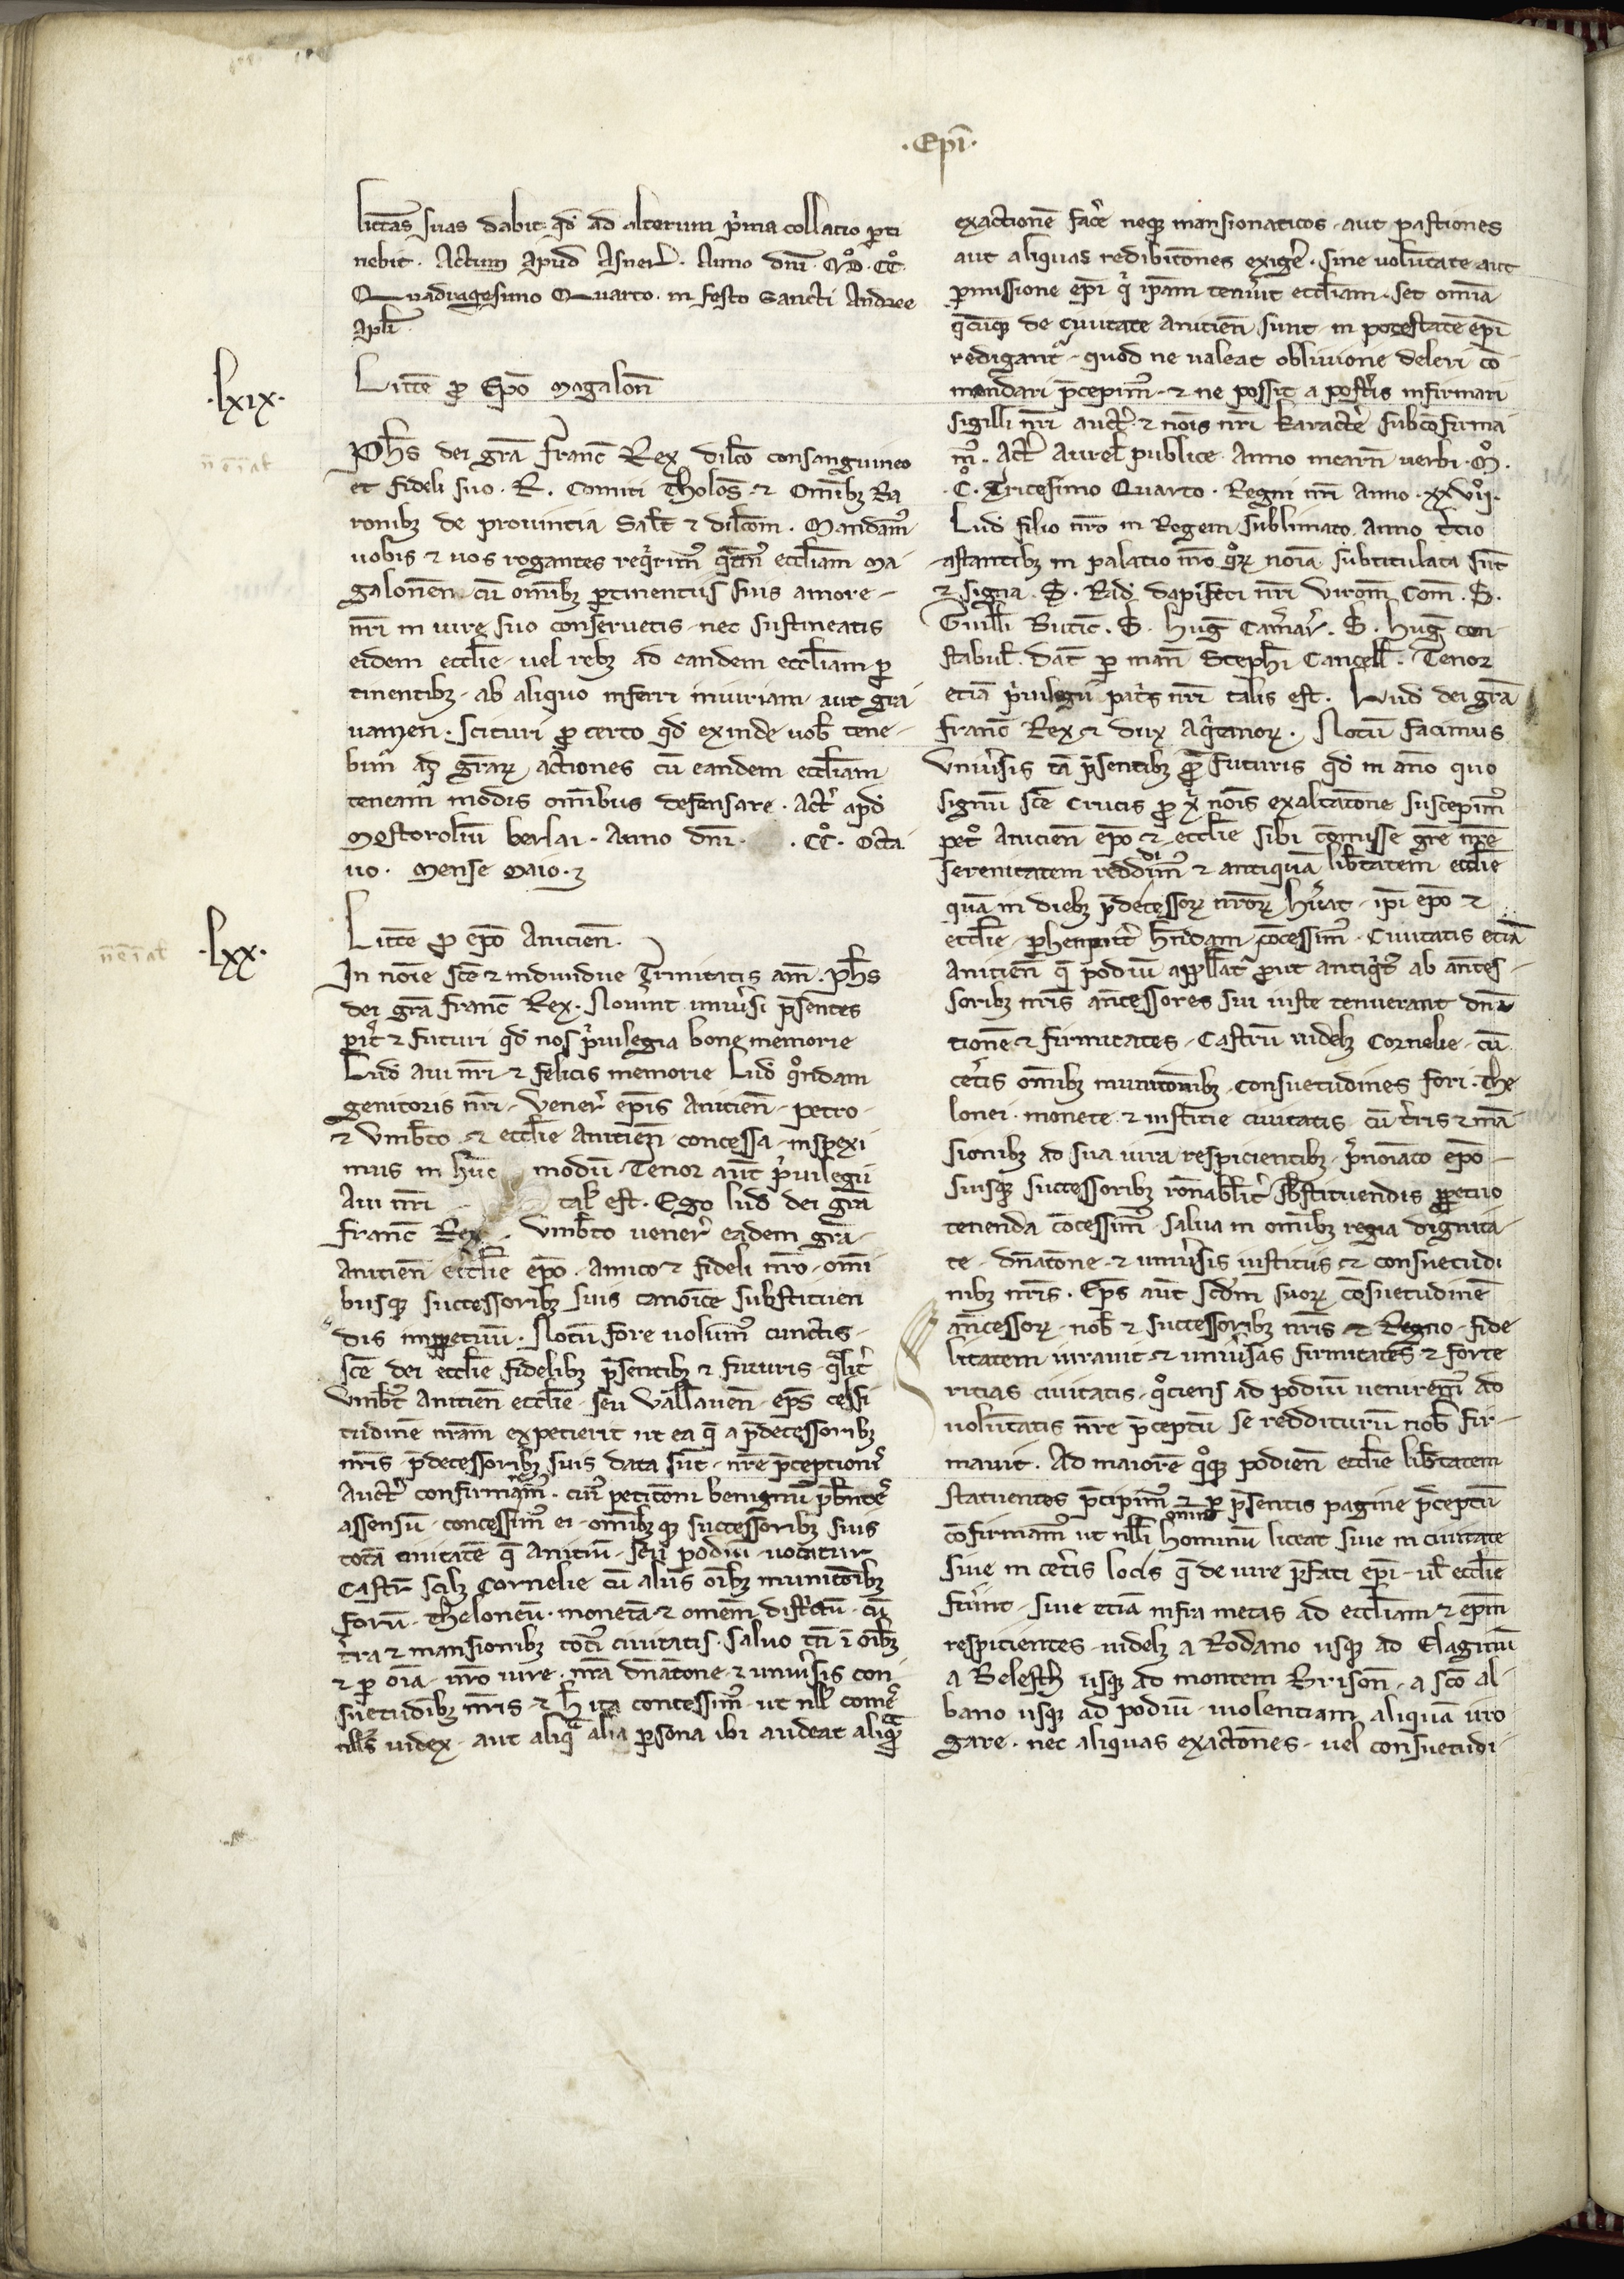 .Epı̄.
litt̄as suas dabit. qđ ad alterum p̾ma collatio ꝑti
nebit. Actum apud Asnerł. Anno dn̄i. M̊. CC̊.
Quadragesimo Quarto. in festo Sancti Andree
apłi.
.lxix.
Litt̄e ꝓ Ep̄o Magalon̄
n̄ ē ī al̄
Ph̄s dei gr̄a Franc̄ Rex dilc̄o consanguineo
et fideli suo .R. Comiti Tholos̄. ⁊ Om̄ibȝ Ba
ronibȝ de prouintia Salt̄ ⁊ dilc̄om. Mandam᷒
uobis ⁊ uos rogantes req̾rim᷒ q̄tin᷒ eccłiam Ma
galonen̄. cū om̄ibȝ ꝑtinentiis suis amore
nr̄i in iure suo conseruetis. nec sustineatis
eidem eccłie. uel rebȝ ad eandem eccłiam ꝑ
tinentibȝ. ab aliquo inferri iniuriam aut gra
uamen. scituri ꝓ certo qđ exinde uob̄ tene
bim᷒ ad gr̄aꝝ actiones cū eandem eccłiam
teneam᷒ modis om̄ibus defensare. Act̄ apđ
Mostoroliū berlai. Anno dn̄i. . CC̊. Octa
uo. Mense Maio.
.lxx.
n̄ ē ī al̄
Litt̄e ꝓ ep̄o Anicien̄.
In noīe sc̄e ⁊ indiuidue Trinitatis am̄. Ph̄s
dei gr̄a Franc̄ Rex. Nouerint uniu̾si p̄sentes
pariť ⁊ futuri qđ nos p̾uilegia bone memorie
Lud̄ aui nr̄i. ⁊ felicis memorie Lud̄ q̊ndam
genitoris nr̄i. Vener̄ ep̄is Anicien̄. petro
⁊ Vmb̄to. ⁊ eccłie Anicien̄ concessa. inspexi
mus in hūc modū. Tenor aūt p̾uilegii
Aui nr̄i tał est. Ego lud̄ dei gr̄a
Franc̄ Rex. Vmb̄to uener̄ eadem gr̄a
Anicien̄ eccłie ep̄o. Amico ⁊ fideli nr̄o. om̄i
busqꝫ successoribȝ suis canoīce substituen
dis inꝑpetuū. Notū fore uolum᷒ cunctis
sc̄e dei eccłie fidelibȝ p̄sentibȝ ⁊ futuris. qłiť
Vmb̄t᷒ Anicien̄ eccłie. seu Vallauen̄. ep̄s celsi
tudinē nr̄am expetierit ut ea q̄ a p̄decessoribȝ
nr̄is. p̄decessoribȝ suis data sūt. nr̄e p̄ceptionis
auct̄ confirmarem᷒. cui᷒ petic̄oni benignū p̄bentes
assensū. concessim᷒ ei. om̄ibȝqꝫ successoribȝ suis
totā ciuitatē q̄ Aniciū. seu podiū uocatur
Castr̄ scilȝ Cornelie cū aliis oībȝ munic̄oībȝ
forū. Theloneū. monetā. ⁊ omēm districtū. cū
tr̄ra ⁊ mansionibȝ toti᷒ ciuitatis. saluo tn̄ ī oībȝ
⁊ ꝑ oīa. nr̄o iure. nr̄a dn̄atōne. ⁊ uniu̾sis con
suetudībȝ nr̄is. ⁊ h̄ ita concessim᷒. ut null᷒ comes
null᷒ iudex. aut aliq̄ alia ꝑsona ibi audeat aliq̄
exactionē fac̾e neqꝫ mansionaticos. aut pastiones
aut aliquas redibitōnes exig̾e. sine uolūtate aut
ꝑmissione ep̄i q̾ ip̄am tenu̾it eccłiam. set om̄ia
q̄cūqꝫ de ciuitate Anicien̄ sunt. in potestatē ep̄i
redigant᷒. quod ne ualeat obliuione deleri cō
mendari p̄cepim᷒. ⁊ ne possit a post̾is infirmari
sigilli nr̄i auct̄e. ⁊ nois nr̄i karact̾e subcōfirma
m᷒. Act̄ Aurel̄ publice. Anno incarn̄ uerbi .M̊.
.C̊. Tricesimo Quarto. Regni nr̄i Anno .xxvij̊.
Lud̄ filio nr̄o in Regem sublimato. Anno t̾cio
astantibȝ in palatio nr̄o q̊ꝝ noīa subtitulata sūt
⁊ signa. S. Rad̄ dapif̾eri nr̄i Virom̄ Com̄. S.
Guiłłi Butic̄. S. Hug̃ Cam̾ar̄. S. Hug̃ con
stabuł. Dat̄ ꝑ man̄ Steph̄i Cancelł. Tenor
etiā p̾uilegii pat̾s nr̄i talis est. Lud̄ dei gr̄a
Franc̄ Rex ⁊ dux Aq̾tanoꝝ. Notū facimus
Vniu̾sis tā p̄sentibȝ q̄ futuris qđ in āno quo
signū sc̄e crucis ꝓ x̾ nois exaltatōne suscepim᷒
pet᷒ Anicien̄ ep̄o ⁊ eccłie sibi cōmisse gr̄e nr̄e
serenitatem reddidim᷒ ⁊ antiquā lib̾tatem eccłie
quā in diebȝ p̄decessoꝝ nr̄oꝝ hu̾at. ip̄i ep̄o ⁊
eccłie. ꝑhenniť hn̄dam cōcessim᷒. Ciuitatis etiā
Anicien̄ q̄ podiū appłłat᷒ ꝓut antiq̾t᷒ ab ānces
soribȝ nr̄is āncessores sui iuste tenuerant dn̄a
tionē ⁊ firmitates. Castrū uidelȝ Cornelie. cū
cet̾is om̄ibȝ munitōnibȝ. consuetudines fori. The
lonei. monete. ⁊ iustitie ciuitatis. cū t̾ris ⁊ mā
sionibȝ ad sua iura respicientibȝ. p̾noīato ep̄o
suisqꝫ successoribȝ rōnabiłiť sb̄stituendis ꝑpetuo
tenenda cōcessim᷒. salua in om̄ibȝ regia dignita
te. dn̄atōne. ⁊ uniu̾sis iustitiis ⁊ consuetudi
nibȝ nr̄is. Ep̄s aūt scd̄m suoꝝ cōsuetudinē
āncessoꝝ. nob̄ ⁊ successoribȝ nr̄is ⁊ Regno. fide
litatem iurauit ⁊ uniu̾sas firmitates ⁊ forte
ricias ciuitatis. q̊ciens ad podiū uenirem᷒ ad
uolūtatis nr̄e p̄ceptū se redditurū nob̄ fir
mauit. Ad maiorē q̊qꝫ podien̄ eccłie lib̾tatem
statuentes p̄cipim᷒ ⁊ ꝑ p̄sentis pagine p̄ceptū
cōfirmam᷒ ut nłłi omnino hominū liceat siue in ciuitate
siue in cet̾is locis q̄ de iure p̄fati ep̄i. ul̄ eccłie
fu̾int. siue etiā infra metas ad eccłiam ⁊ ep̄m
respicientes. uidelȝ a Rodano usqꝫ ad Elagium
a Belesth̄ usqꝫ ad montem Brison̄. a sc̄o al
bano usqꝫ ad podiū. uiolentiam aliquā irro
gare. nec aliquas exactōnes. uel consuetudi